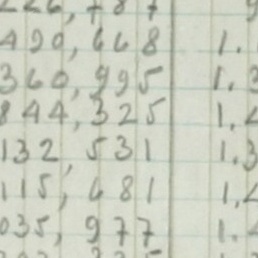 226,787
490,668 1.
360,995 1.3
844,325 1.2
132,531 1.3
115,681 1.2
035,977 1.2